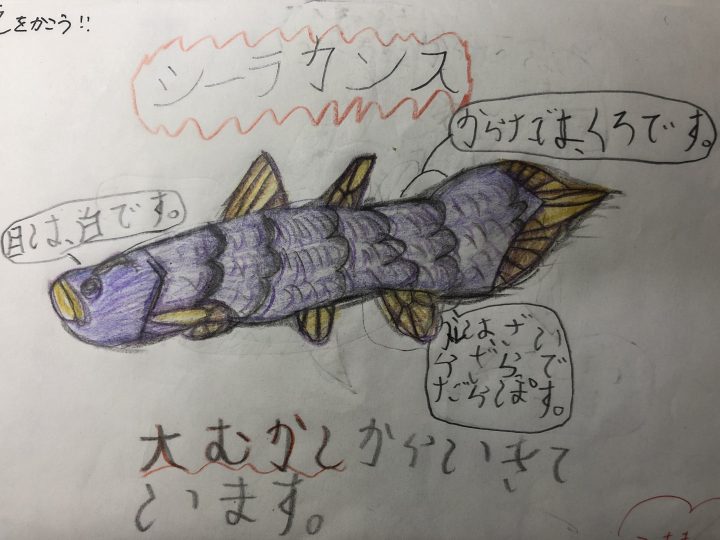 をかこう!!
シーラカンス
からだは、くろです。
目は、白です。
大むかしからいきて
います。